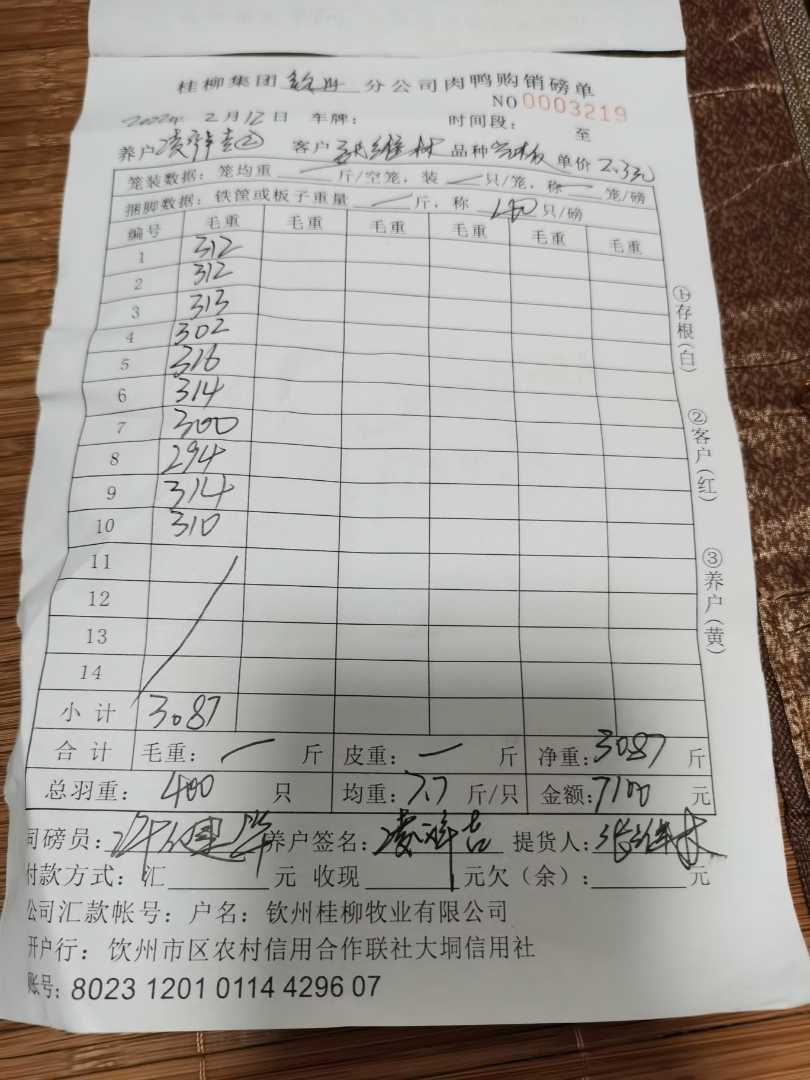 桂柳集团 钦州 分公司肉鸭购销磅单
NO 0003219
2022年 2月12日 车牌： 时间段： 至
养户 客户 张维林 品种 单价 2.3元
笼装数据：笼均重 — 斤/空笼，装 — 只/笼，称 — 笼/磅
捆脚数据：铁筐或板子重量 — 斤，称 只/磅
编号 毛重 毛重 毛重 毛重 毛重 毛重
1 312
2 312
3 313
4 302
5 316
6 314
7 300
8 294
9 314
10 310
11
12
13
14
小计 3087
合计 毛重： — 斤 皮重： — 斤 净重：3087 斤
总羽重： 400 只 均重：7.7 斤/只 金额：7100 元
司磅员： 养户签名： 提货人：张维林
付款方式：汇 元 收现 元欠（余）： 元
公司汇款帐号：户名：钦州桂柳牧业有限公司
开户行：饮州市区农村信用合作联社大垌信用社
账号：8023 1201 0114 4296 07
①存根（白）
②客户（红）
③养户（黄）